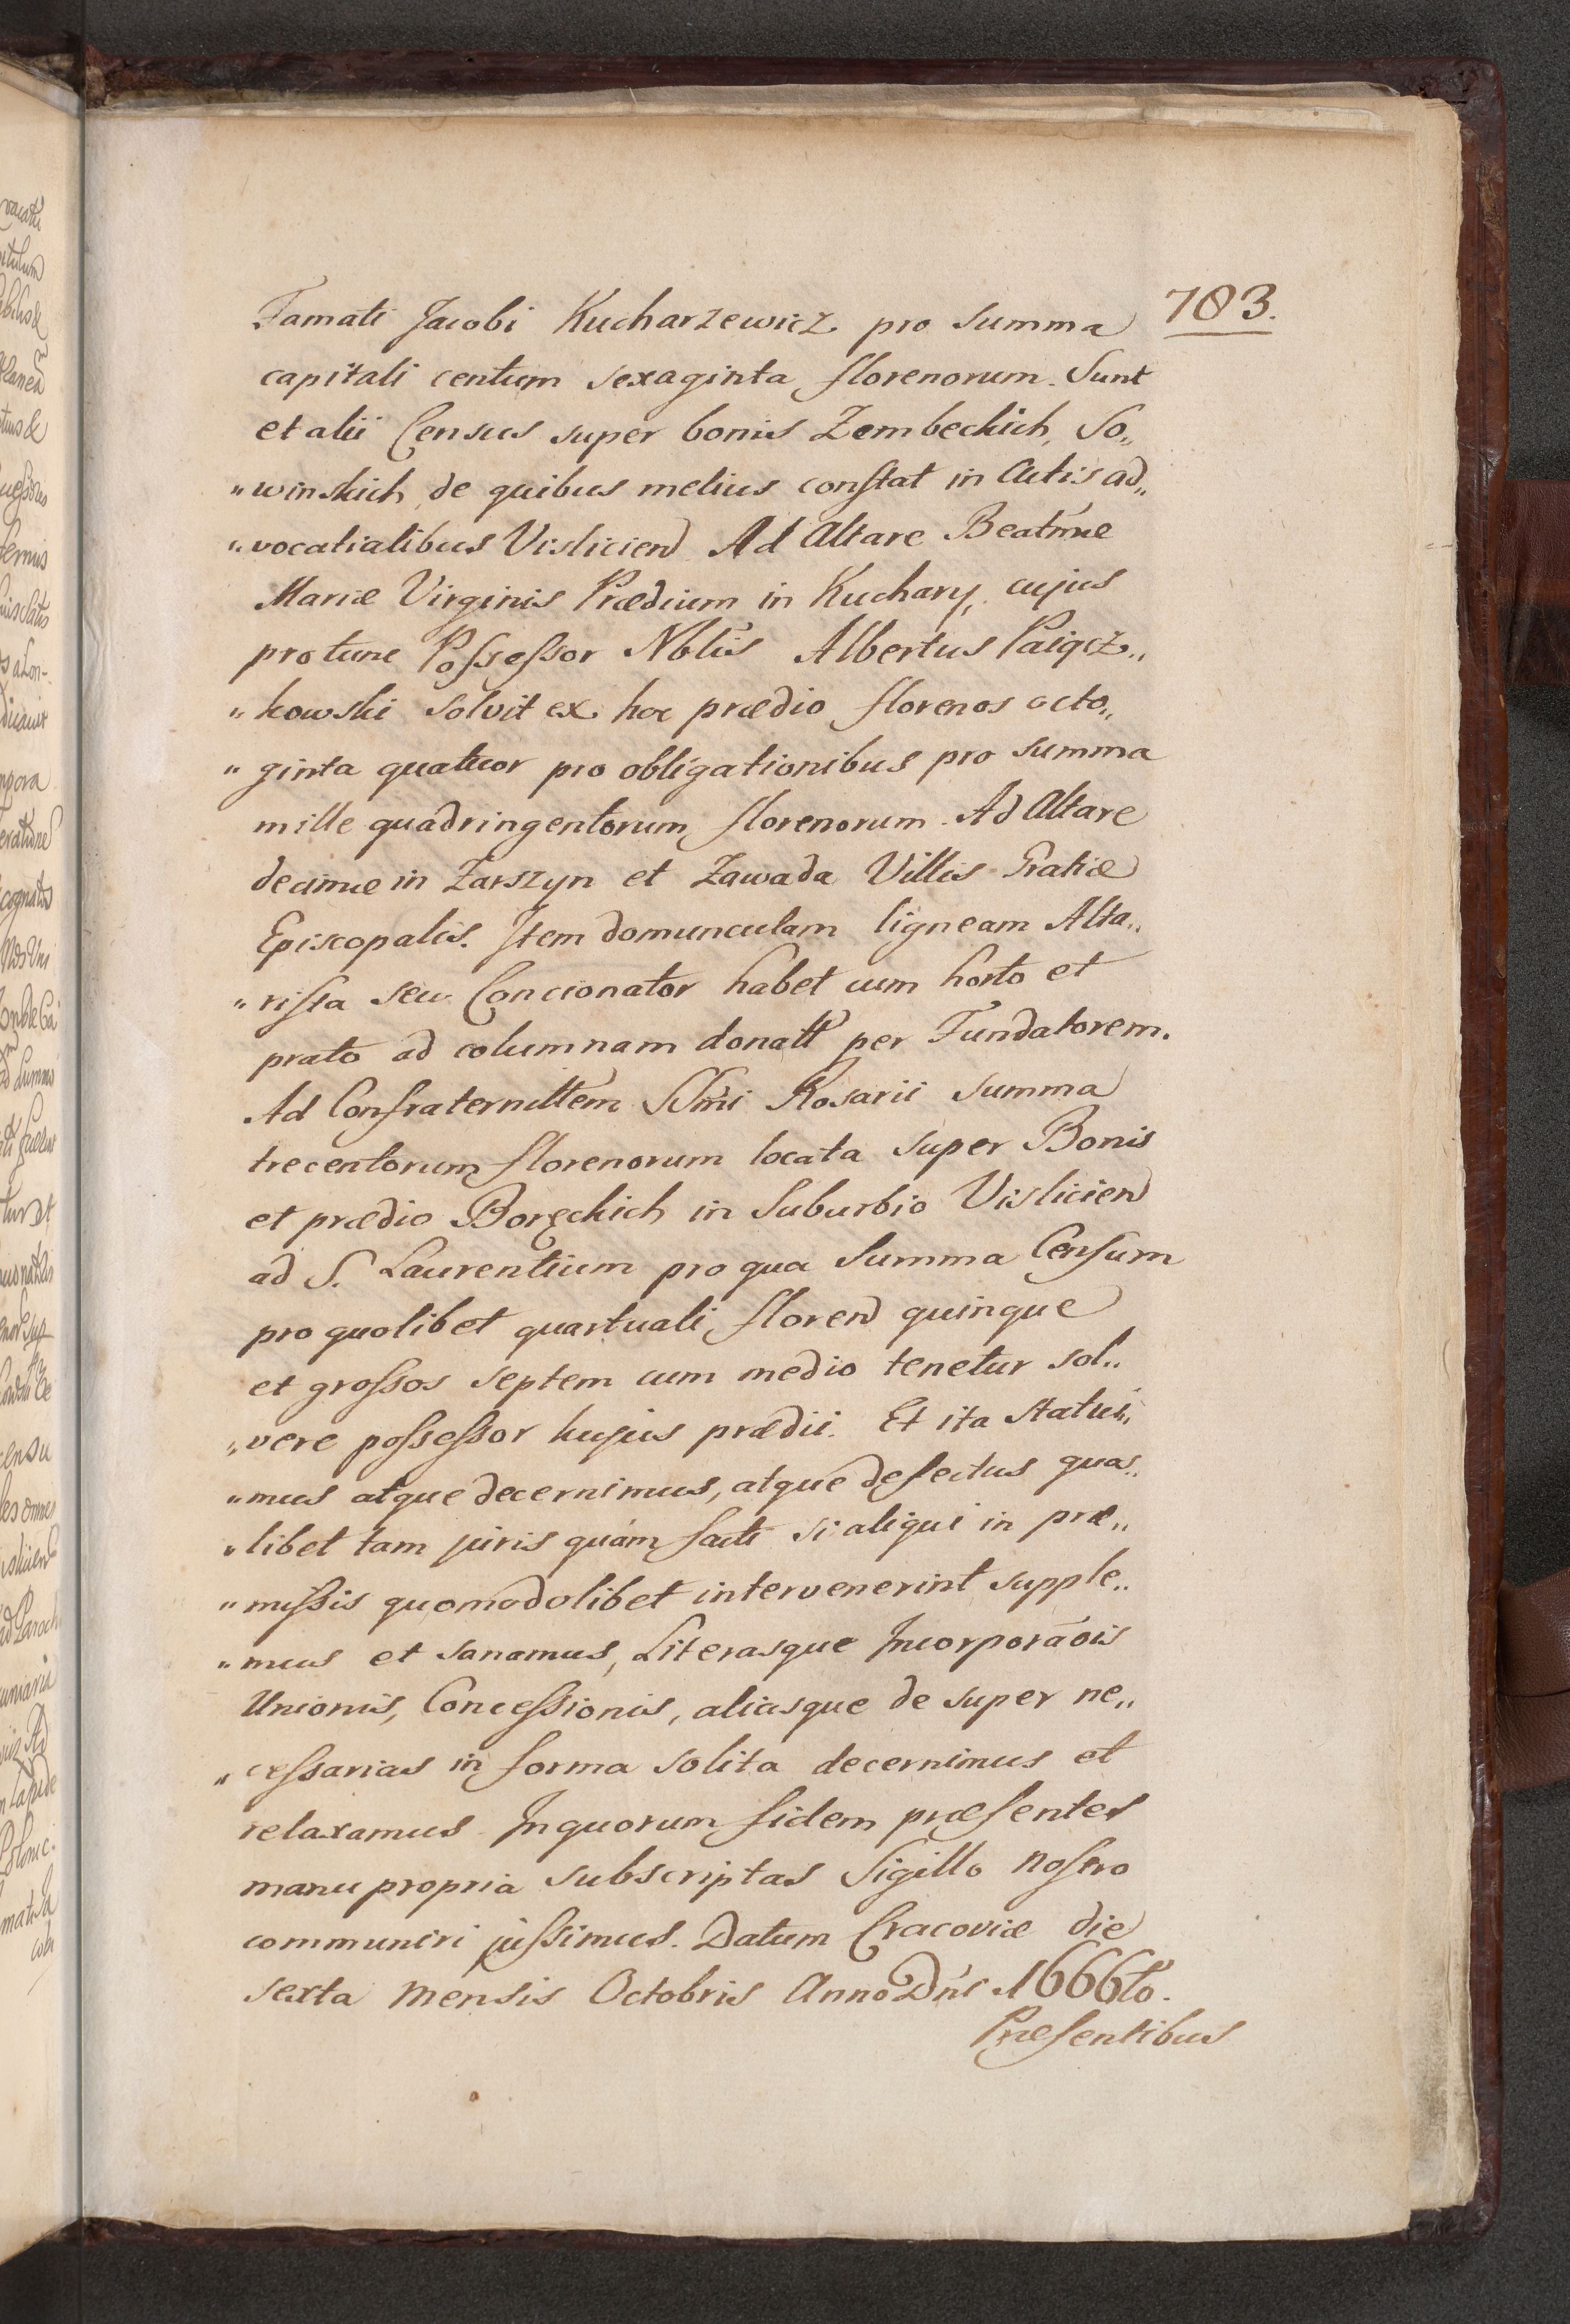 783.
Famati Jacobi Kucharzewicz pro summa
capitali centum sexaginta florenorum. Sunt
et alii Census super bonis Zembeckich, So„
„winskich, de quibus melius constat in Actis ad„
„vocatialibus Vislicien Ad Altare Beatmæ
Mariæ Virginis Prædium in Kuchary, cujus
pro tunc Possessor Nblis Albertus Paigcz„
„kowski solvit ex hoc prædio florenos octo„
„ginta quatuor pro obligationibus pro summa
mille quadringentorum florenorum. Ad Altare
decimæ in Zarszyn et Zawada Villis Gratiæ
Episcopalis. Item domunculam ligneam Alta„
„rista seu Concionator habet cum horto et
prato ad columnam donatt per Fundatorem.
Ad Confraternittem SSmi Rosarii summa
trecentorum florenorum locata super Bonis
et prædio Boręckich in Suburbio Vislicien
ad S. Laurentium pro qua Summa Censum
pro quolibet quartuali floren quinque
et grossos septem cum medio tenetur sol„
„vere possessor hujus prædii. Et ita statui„
„mus atque decernimus, atque defectus quas„
„libet tam juris quàm facti si aliqui in præ„
„missis quomodolibet intervenerint supple„
„mus et sanamus, Literasque Incorporaõis
Unionis, Concessionis, aliasque de super ne„
„cessarias in forma solita decernimus et
relaxamus. In quorum fidem præsentes
manu propria subscriptas Sigillo nostro
communiri jussimus. Datum Cracoviæ die
sexta mensis Octobris Anno Dni 1666to.
Præsentibus